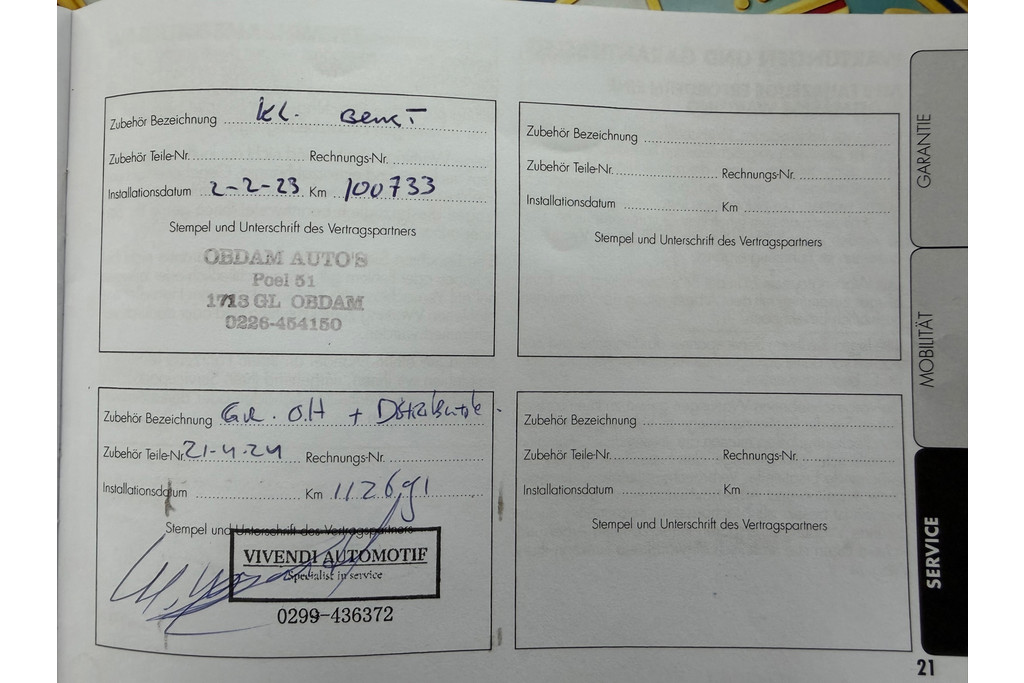 Zubehör Bezeichnung Kl. Beurt
Zubehör Teile-Nr. Rechnungs-Nr.
Installationsdatum 2-2-23 Km 100733
Stempel und Unterschrift des Vertragspartners
OBDAM AUTO'S
Poel 51
1713 GL OBDAM
0226-454150
Zubehör Bezeichnung
Zubehör Teile-Nr. Rechnungs-Nr.
Installationsdatum Km
Stempel und Unterschrift des Vertragspartners
Zubehör Bezeichnung GR. OH +
Zubehör Teile-Nr. 21-4-24 Rechnungs-Nr.
Installationsdatum Km 112691
Stempel und Unterschrift des Vertragspartners
VIVENDI AUTOMOTIF
Specialist in service
0299-436372
Zubehör Bezeichnung
Zubehör Teile-Nr. Rechnungs-Nr.
Installationsdatum Km
Stempel und Unterschrift des Vertragspartners
GARANTIE
MOBILITÄT
SERVICE
21